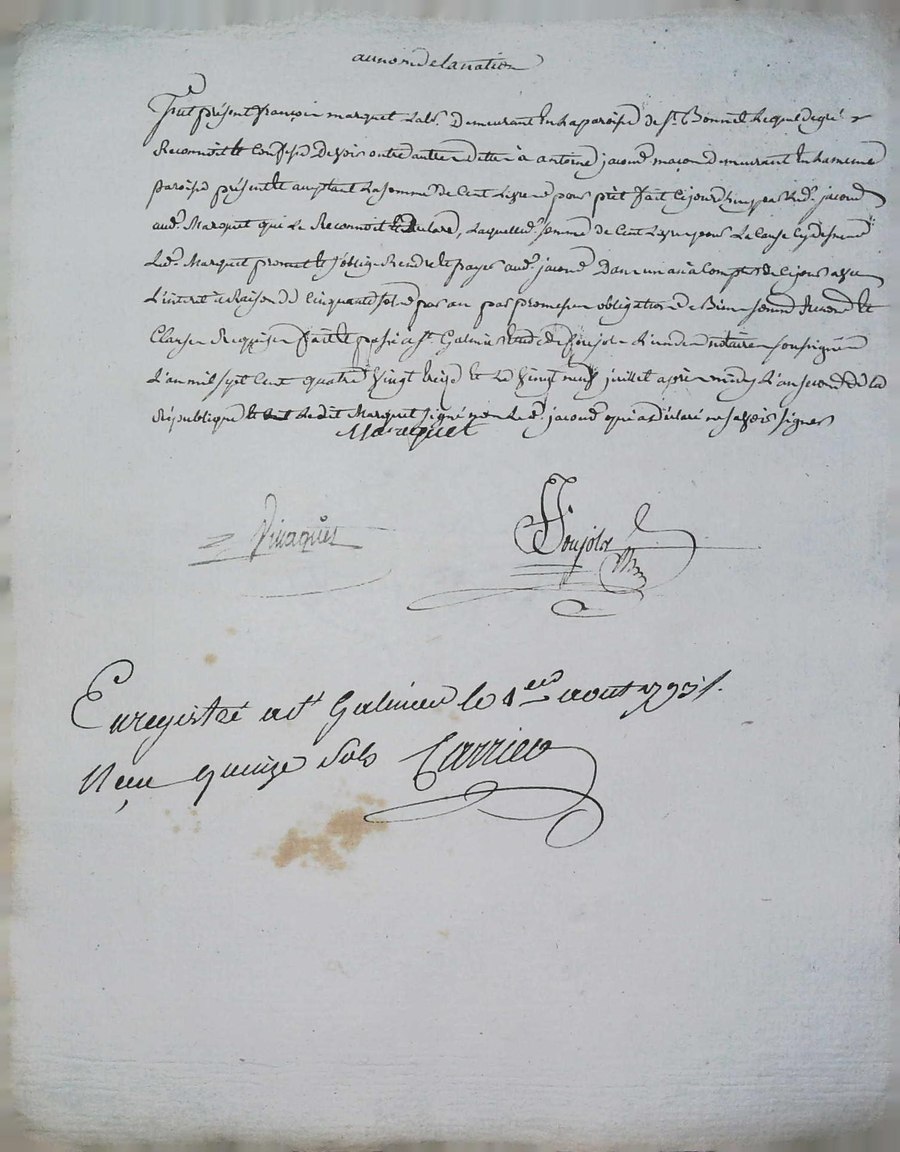 au nom de la nation
Fut présent françois marquet lab.r Demeurant En La paroisse de st. Bonnet Lequel de gré
Reconnoit et Confesse Devoir outre autre dettes à antoine jacoud maçon demeurant En la meme
paroisse présent et acceptant La somme de Cent Livres pour prêt fait Ce jourd'huy par led. jacoud
aud. Marquet qui Le Reconnoit et Declare, Laquelle d. somme de Cent Livres pour La Cause Cy dessus
Led. Marquet promet et s'oblige Rendre et payer aud. jacoud Dans un an à Compter de Ce jour avec
L'interet à Raison de Cinquante sols par an par promesse obligation de Biens
Clauses Requises fait et passé à st Galmier Etude de Poujol L'un des notaires soussignés
L'an mil sept Cent quatre Vingt treize et Le Vingt neuf juillet après midy L'an second de la
République et Ledit Marquet signé non Le d. jacoud qui a déclaré ne savoir signer
Marquet
Poujol
Enregistré a st Galmier le 1er aout 1793.
Reçu quinze sols Carrier